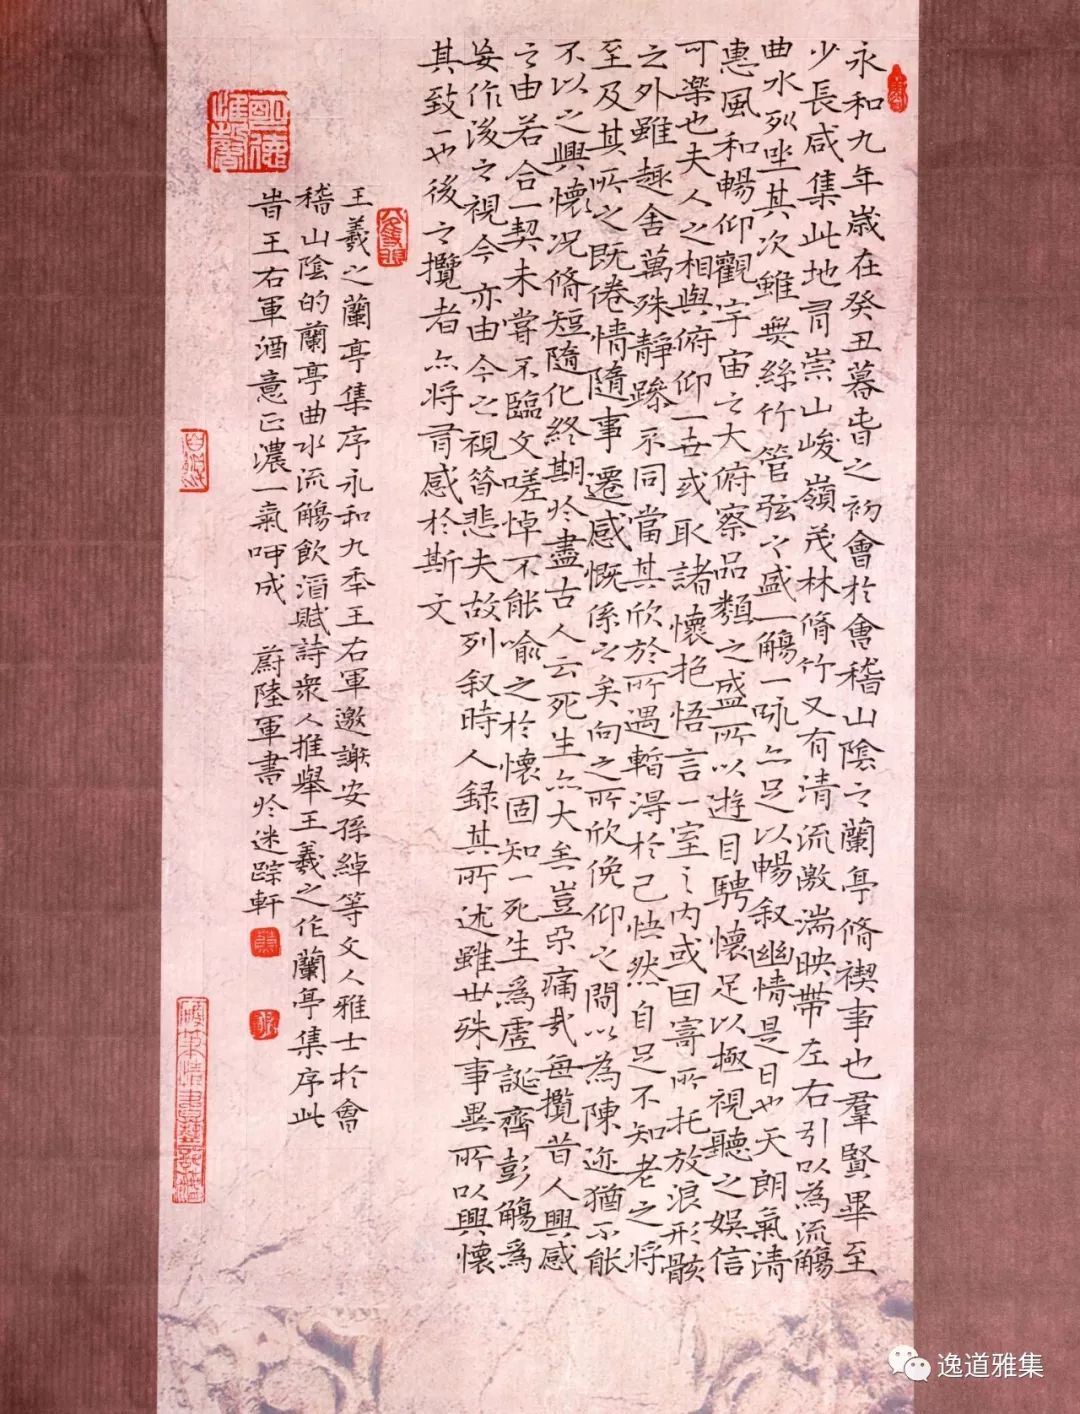 永和九年歲在癸丑暮旾之初會於會稽山陰之蘭亭脩禊事也羣賢畢至
少長咸集此地有崇山峻嶺茂林脩竹又有清流激湍映帶左右引以為流觴
曲水列坐其次雖無絲竹管弦之盛一觴一咏亦足以暢叙幽情是日也天朗氣清
惠風和暢仰觀宇宙之大俯察品類之盛所以遊目騁懷足以極視聽之娛信
可樂也夫人之相與俯仰一世或取諸懷抱悟言一室之內或因寄所托放浪形骸
之外雖趣舍萬殊靜躁不同當其欣於所遇暫得於己快然自足不知老之將
至及其所之既倦情隨事遷感慨係之矣向之所欣俛仰之間以為陳迹猶不能
不以之興懷况脩短隨化終期於盡古人云死生亦大矣豈不痛哉每攬昔人興感
之由若合一契未嘗不臨文嗟悼不能喻之於懷固知一死生為虛誕齊彭觴為
妄作後之視今亦由今之視昔悲夫故列叙時人録其所述雖世殊事異所以興懷
其致一也後之攬者亦將有感於斯文
王羲之蘭亭集序永和九年王右軍邀謝安孫綽等文人雅士於會
稽山陰的蘭亭曲水流觴飲酒賦詩衆人推舉王羲之作蘭亭集序此
旹王右軍酒意正濃一氣呵成 蔚陸軍書於迷踪軒
逸道雅集